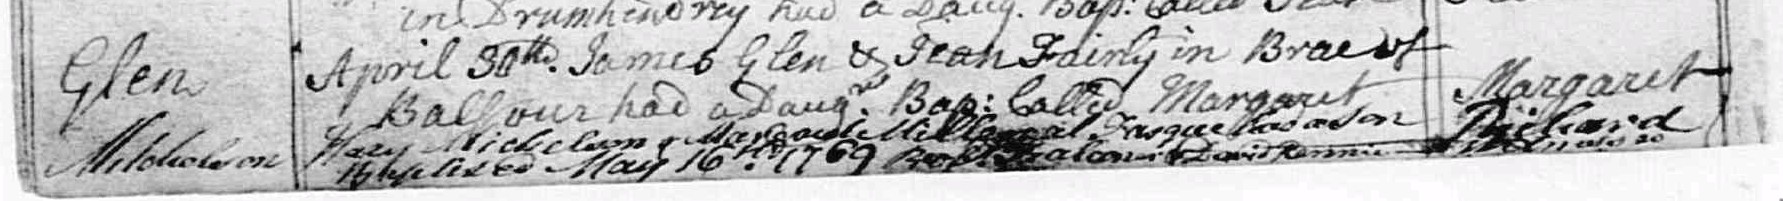 in Drumhendrey had a Daug. Bap: Called Jean
Glen April 30th. James Glen & Jean Fairly in Brae of
Balfour had a Daugr. Bap: Called Margaret Margaret
Hary Michelson & Margaret Mill at Fasque had a Son Richard
Mitchelson Baptised May 16th. 1769 David Rennie